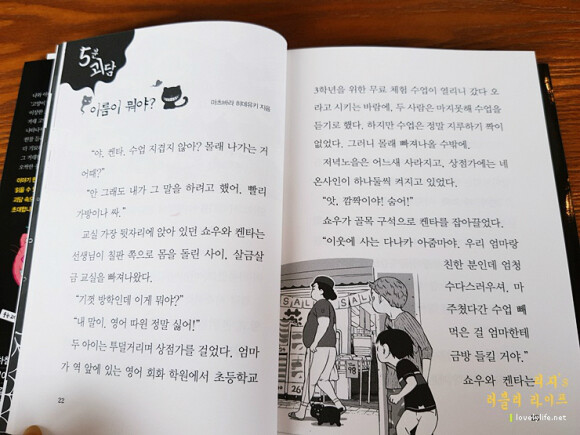 5분
괴담
이름이 뭐야?
마츠바라 히데유키 지음
“야, 켄타. 수업 지겹지 않아? 몰래 나가는 거
어때?”
“안 그래도 내가 그 말을 하려고 했어. 빨리
가방이나 싸.”
교실 가장 뒷자리에 앉아 있던 쇼우와 켄타는
선생님이 칠판 쪽으로 몸을 돌린 사이, 살금살
금 교실을 빠져나왔다.
“기껏 방학인데 이게 뭐야?”
“내 말이. 영어 따윈 정말 싫어!”
두 아이는 투덜거리며 상점가를 걸었다. 엄마
가 역 앞에 있는 영어 회화 학원에서 초등학교
22
3학년을 위한 무료 체험 수업이 열리니 갔다 오
라고 시키는 바람에, 두 사람은 마지못해 수업을
듣기로 했다. 하지만 수업은 정말 지루하기 짝이
없었다. 그러니 몰래 빠져나올 수밖에.
저녁노을은 어느새 사라지고, 상점가에는 네
온사인이 하나둘씩 켜지고 있었다.
“앗, 깜짝이야! 숨어!”
쇼우가 골목 구석으로 켄타를 잡아끌었다.
“이웃에 사는 다나카 아줌마야. 우리 엄마랑
친한 분인데 엄청
수다스러우셔. 마
주쳤다간 수업 빼
먹은 걸 엄마한테
금방 들킬 거야.”
쇼우와 켄타는
SALE SAL
러블리 라이프
lovelylife.net